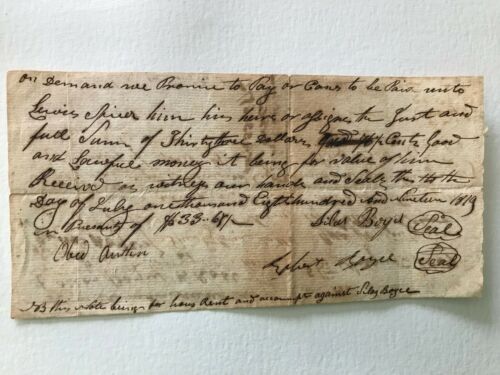 on Demand we Promise to Pay or Caus to be Paid unto
Lewis Spicer him his heirs or assigns the Just and
full Sum of Thirtythree Dollars Cents Good
and Lawfull money it being for value of him
Received as witness our hands and Seals the
Day of July one thousand Eight hundred and Nineteen 1819
in Presents of $33-67
Silas Boyce Seal
Obed Austin
Boyce Seal
NB this note being for hous Rent and accompt against Silas Boyce